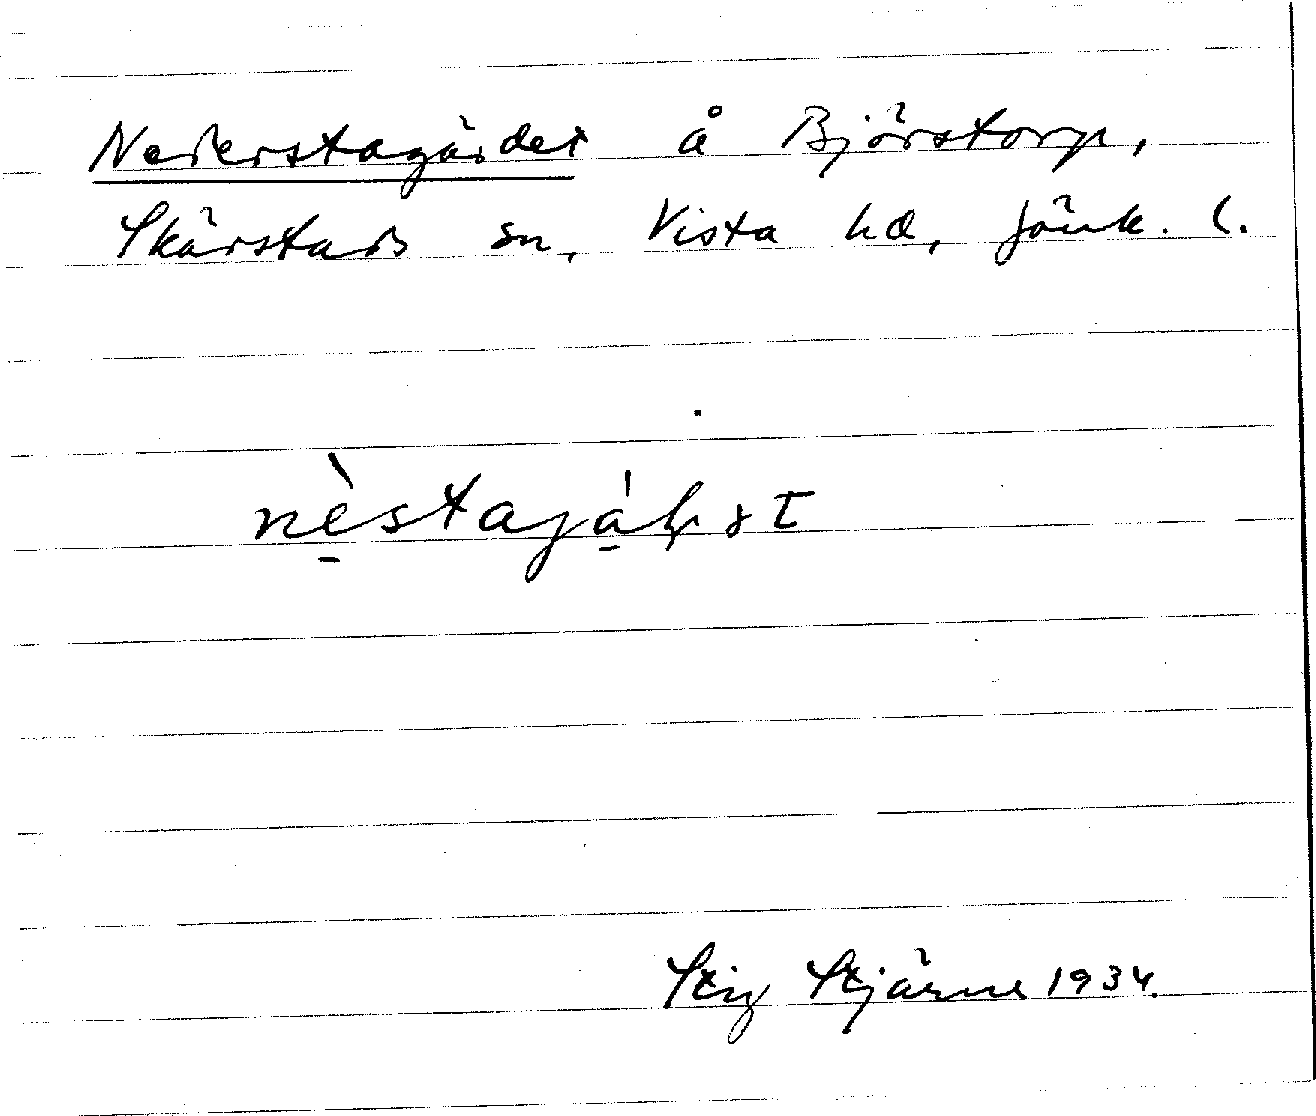 Nederstagärdet å Björstorp,
Skärstads sn, Vista hd, Jönk. l.
Stig Stjärne 1934.